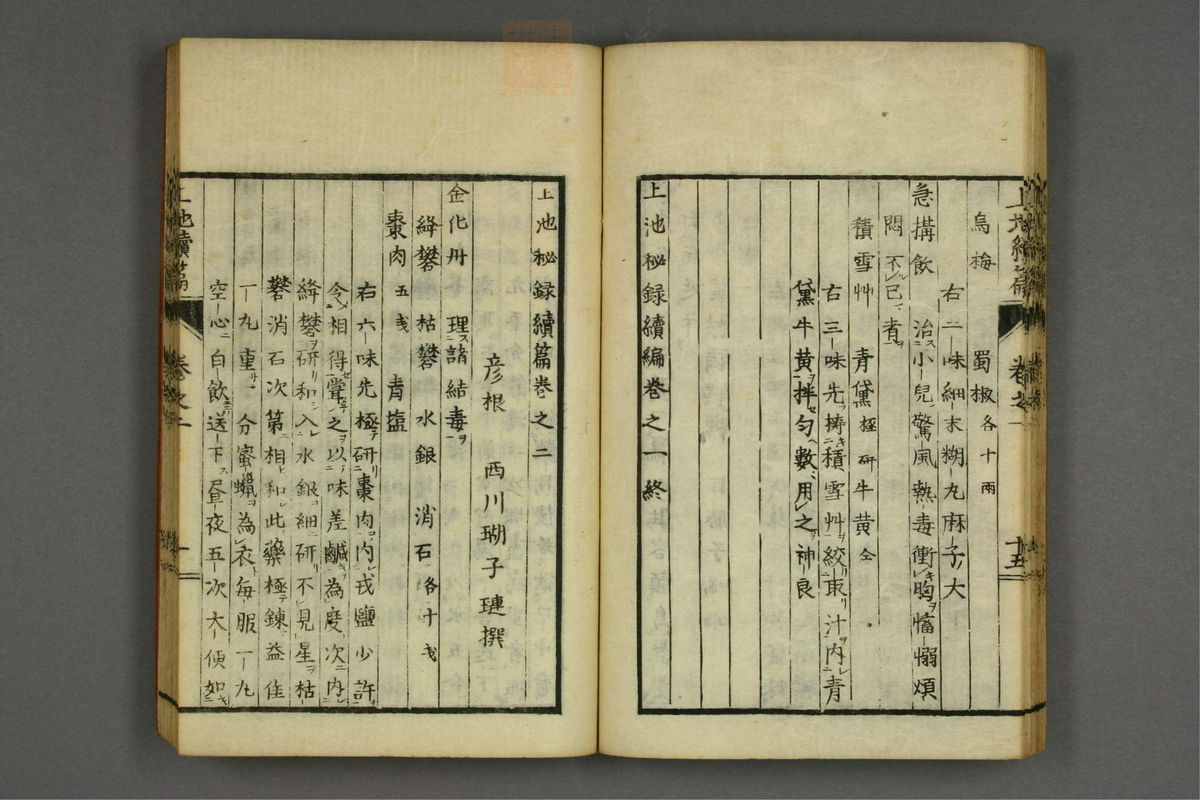 烏梅 蜀椒各十兩
右二味細末糊丸麻子大
急搆飲 治小兒驚風熱毒衝胸悗愵煩
悶不已者
積雪艸 青黛極研 牛黄仝
右三味先擣積雪艸絞取汁内青
黛牛黄拌匀數用之神良
上池秘録續編卷之一終
上池續篇 卷之一 十五
上池秘録續篇卷之二
彦根 西川瑚子璉撰
金化丹 理諸結毒
絳礬 枯礬 水銀 消石各十戔
棗肉五戔 青塩
右六味先極研棗肉内戎鹽少許
令相得甞之以味差鹹為度次内
絳礬研和入水銀細研不見星枯
礬消石次第相和此藥極錬益佳
一丸重サ一分蜜蠟為衣毎服一丸
空心白飲送下昼夜五次大便如
上池續篇 卷之二 一